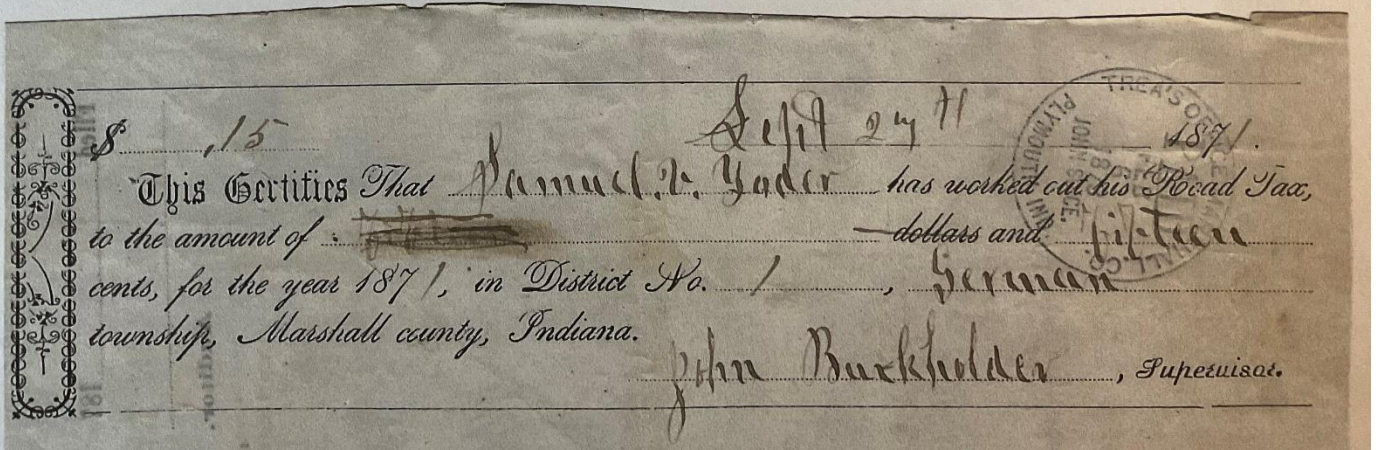 $ ,15 Sept 2nd 1871.
This Certifies That Samuel. Yoder has worked out his Road Tax,
to the amount of dollars and fifteen
cents, for the year 1871, in District No. 1, German
township, Marshall county, Indiana.
John Burkholder, Supervisor.
TREA'S OFFICE MARSHALL CO.
PLYMOUTH IND
JOHN SICE.
Auditor.